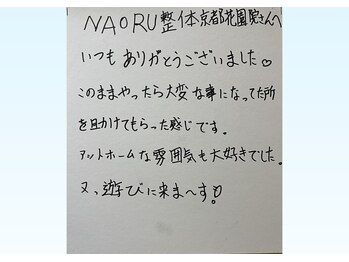 NAORU整体京都花園院さんへ
いつもありがとうございました♡
このままやったら大変な事になってた所
を助けてもらった感じです。
アットホームな雰囲気も大好きでした。
又、遊びに来ま〜す!